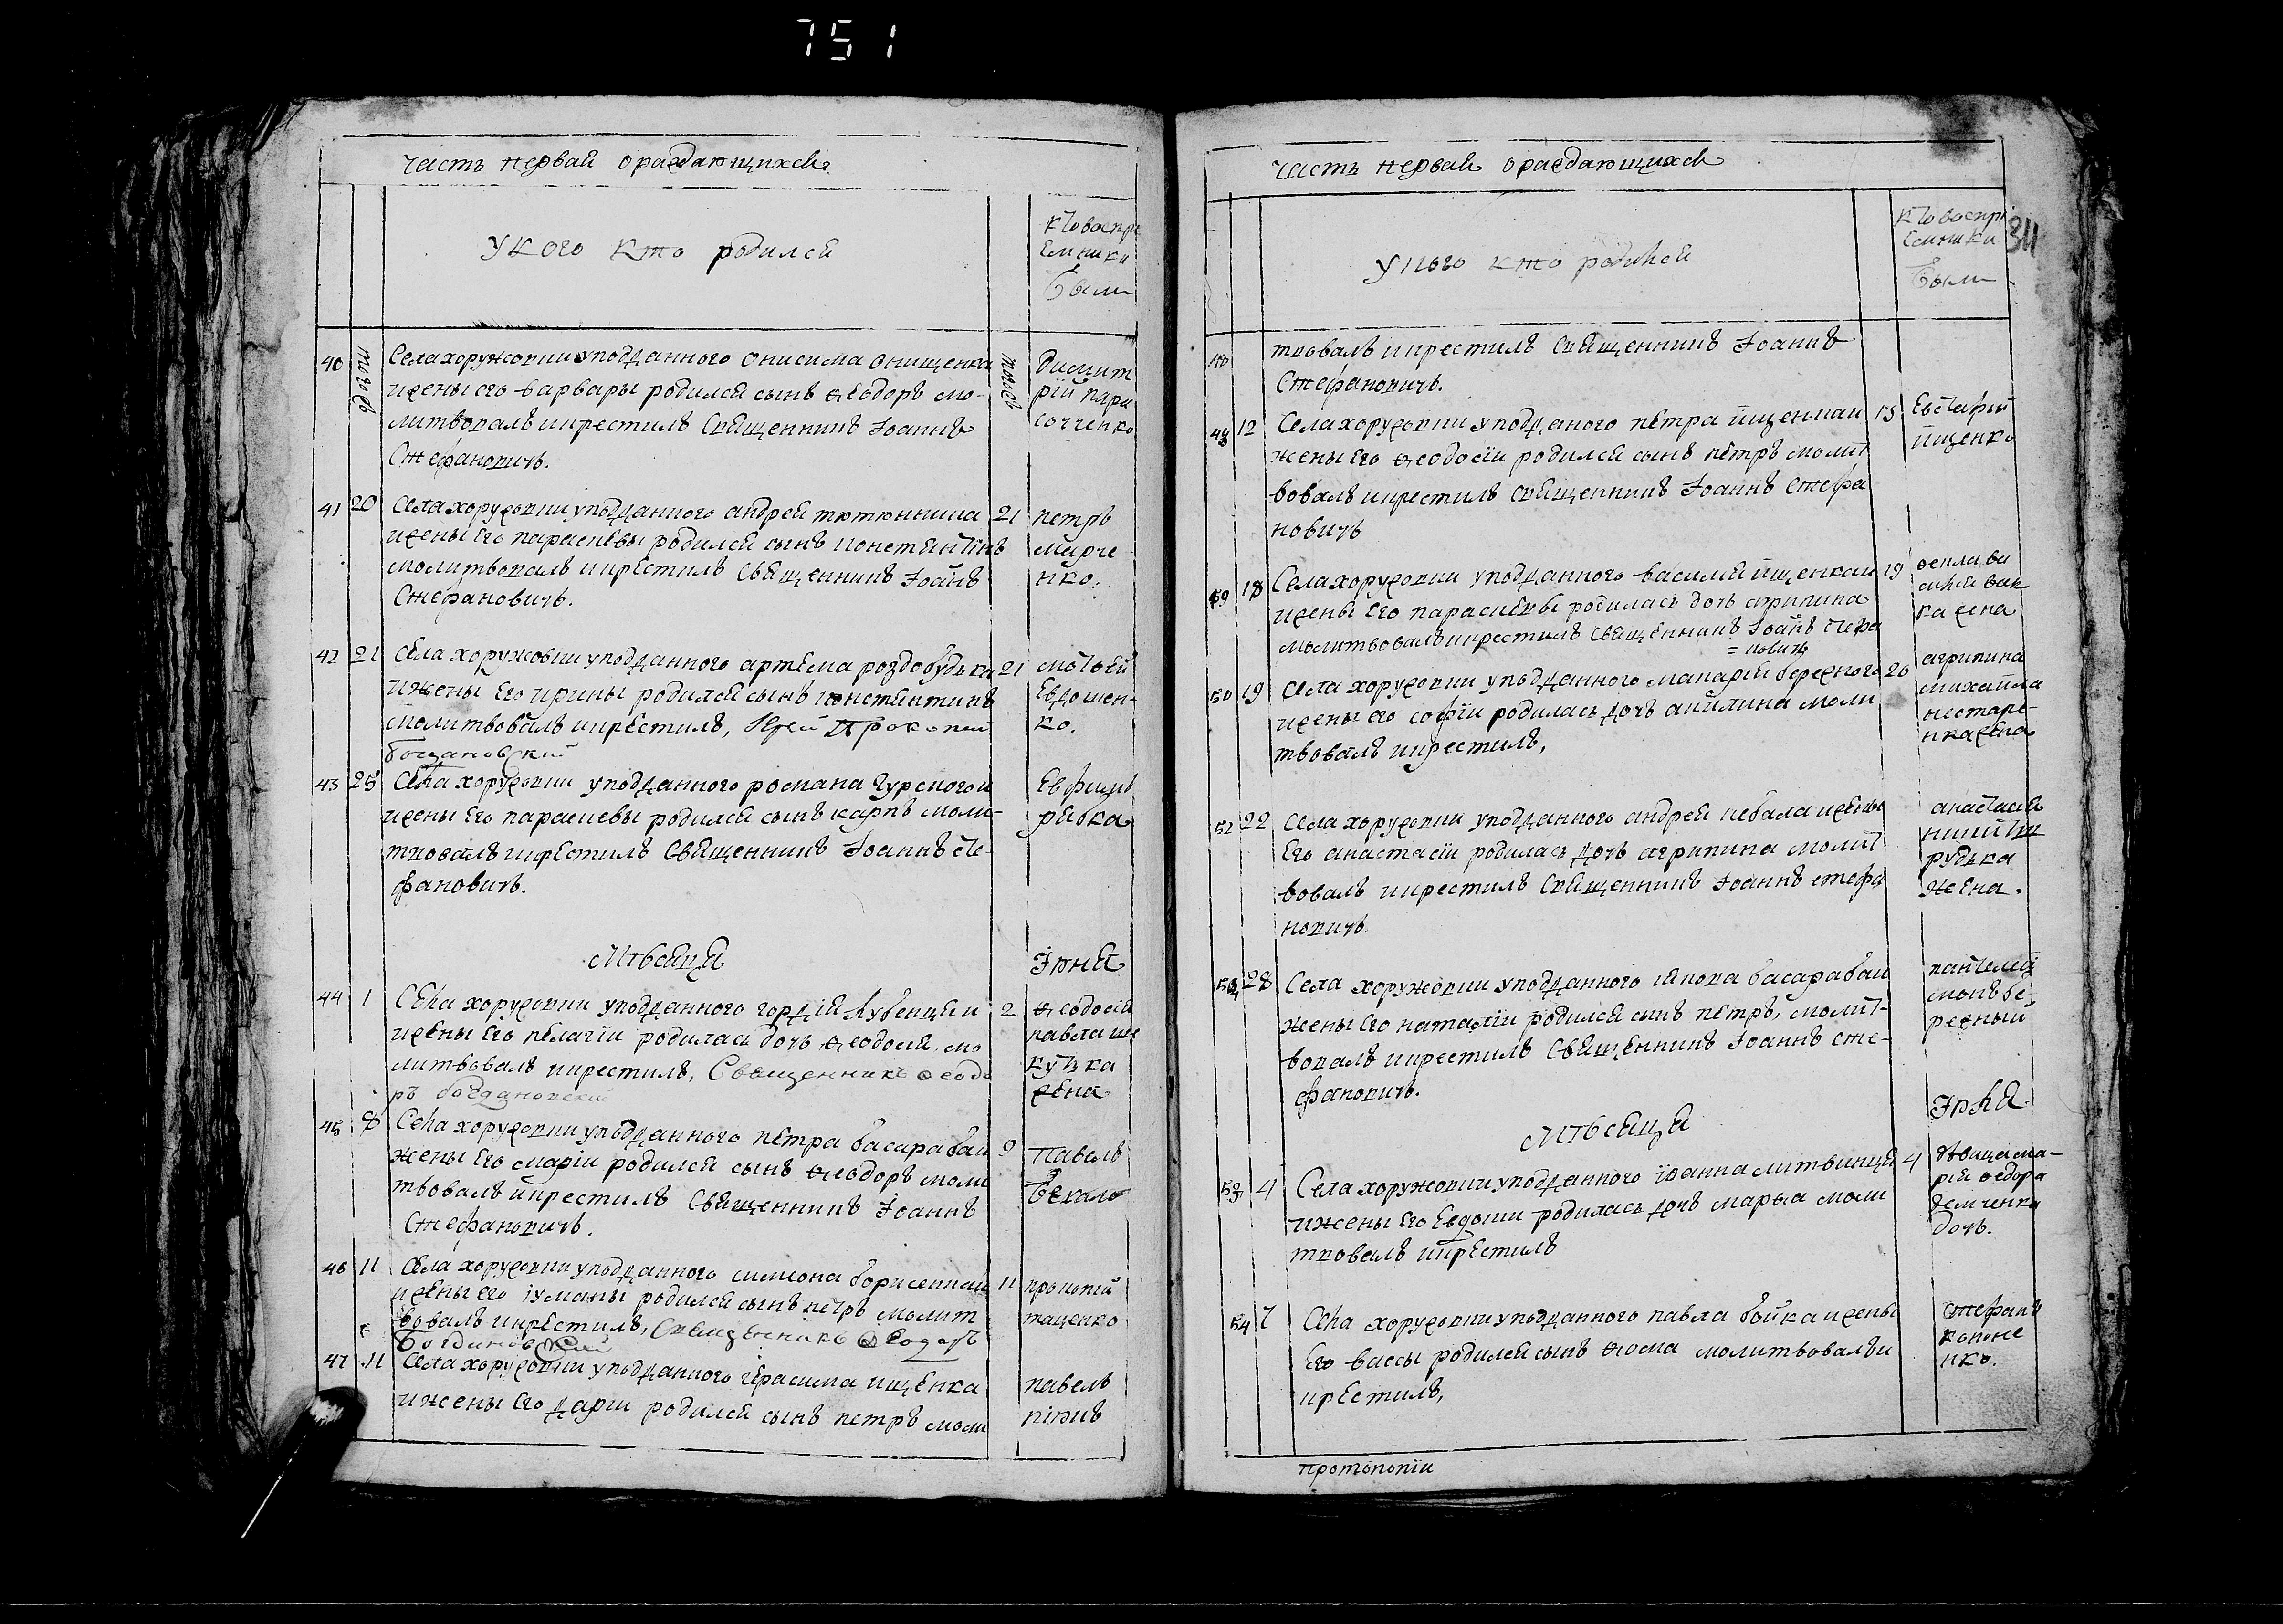 751
Часть первая о раждающихся
У кого кто родился
Кто воспри
емники
были
40 тогожъ Села хоружовки уподданного онисима онищенка
ижены его варвары родился сынъ ѳеодоръ мо-
литвовалъ икрестилъ Священникъ Іоаннъ
Стефановичъ.
тогожъ Димит
рїй пара
сочченко
41 20 Села хоружовки уподданного андрея тютюнника 21
ижены его параскевы родился сынъ константинъ
молитвовалъ икрестилъ Священникъ Іоаннъ
Стефановичъ.
петръ
марче
нко.
42 21 Села хоружовки уподданного артема роздобудька 21
ижены его ирины родился сынъ константинъ
молитвовалъ икрестилъ, Іерей Прокопий
богдановский
матѳей
Евдошен-
ко.
43 25 Села хоружовки уподданного романа Гурского и
жены его параскевы родился сынъ карпъ моли-
твовалъ икрестилъ Священникъ Іоаннъ Сте-
фановичъ.
Евфимъ
рибка
Мѣсяца Іюня
44 1 Села хоружовки уподданного гордїя лубенця и 2
жены его пелагїи родилась дочь ѳеодосия мо
литвовалъ икрестилъ, Священникъ Ѳеодо
ръ богдановский
ѳеодосия
павла ше
жена
45 8 Села хоружовки уподданного петра басараба и 9
жены его марїи родился сынъ ѳеодоръ моли
твовалъ икрестилъ Священникъ Іоаннъ
Стефановичъ.
Павелъ
46 11 Села хоружовки уподданного симеона борисенка и 11
жены его родился сынъ петръ молит
вовалъ икрестилъ, Священникъ Ѳеодоръ
Богдановский
прокопий
таценко
47 11 Села хоружовки уподданного герасима ищенка
ижены его дарїи родился сынъ петръ моли
павелъ
Часть первая о раждающихся
У кого кто родился
Кто воспри
емники
были
311
твовалъ икрестилъ Священникъ Іоаннъ
Стефановичъ.
48 12 Села хоружовки уподданого петра ищенка и 13
жены его ѳеодосїи родился сынъ петръ молит
вовалъ икрестилъ Священникъ Іоаннъ Стефа
новичъ
Евстафий
ищенко
49 18 Села хоружовки уподданного василия ищенка и 19
жены его параскевы родилась дочь агрипина
молитвовалъ икрестилъ Священникъ Іоаннъ Стефа
= новичъ
ѳекла ва
жена
50 19 Села хоружовки уподданного макария бережного 20
ижены его софїи родилась дочь акилина моли
твовалъ икрестилъ,
агрипина
михайла
нестаре-
нка жена
52 22 Села хоружовки уподданного андрея кебала ижены
Его анастасїи родилась дочь агрипина молит
вовалъ икрестилъ Священникъ Іоаннъ стефа
новичъ
анастасия
рудька
жена.
28 Села хоружовки уподданного якова басараба и
жены его наталїи родился сынъ петръ, молит-
вовалъ икрестилъ Священникъ Іоаннъ сте-
фановичъ.
пантелей
монъ бе
режный
Мѣсяца Іюля
53 4 Села хоружовки уподданного їоанна литвинця 4
ижены его Евдокии родилась дочь марѳа моли
твовалъ икрестилъ
дѣвица ма-
рїя ѳедора
демченка
дочь.
54 7 Села хоружовки уподданного павла бойка ижены
Его вассы родился сынъ ѳома молитвовалъ и
крестилъ,
Стефанъ
кононе
нко.
Протопопїи